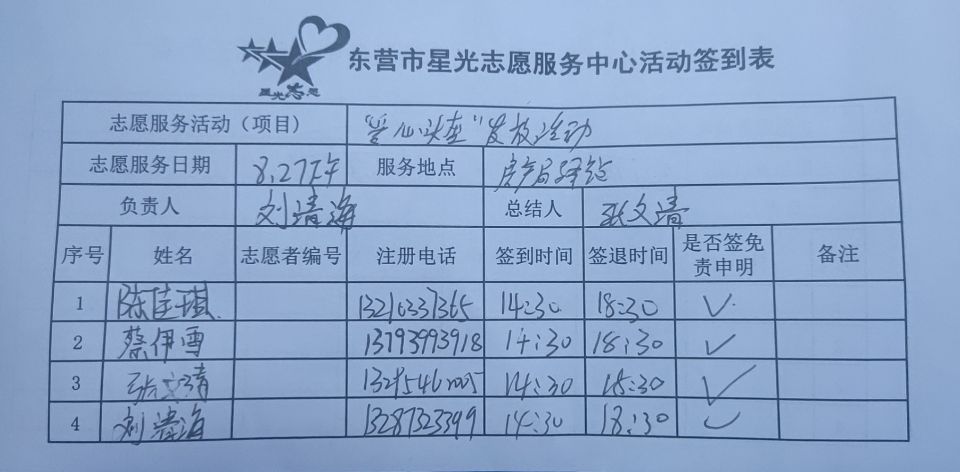 星光志愿
东营市星光志愿服务中心活动签到表
志愿服务活动（项目） "爱心头盔"发放活动
志愿服务日期 8.27下午 服务地点 房产局驿站
负责人 刘清海 总结人 张文靖
序号 姓名 志愿者编号 注册电话 签到时间 签退时间 是否签免责申明 备注
1 陈佳琪 13210337365 14:30 18:30 ✓
2 蔡伊雪 13793993918 14:30 18:30 ✓
3 张文靖 14:30 18:30 ✓
4 刘清海 13287323399 14:30 18:30 ✓